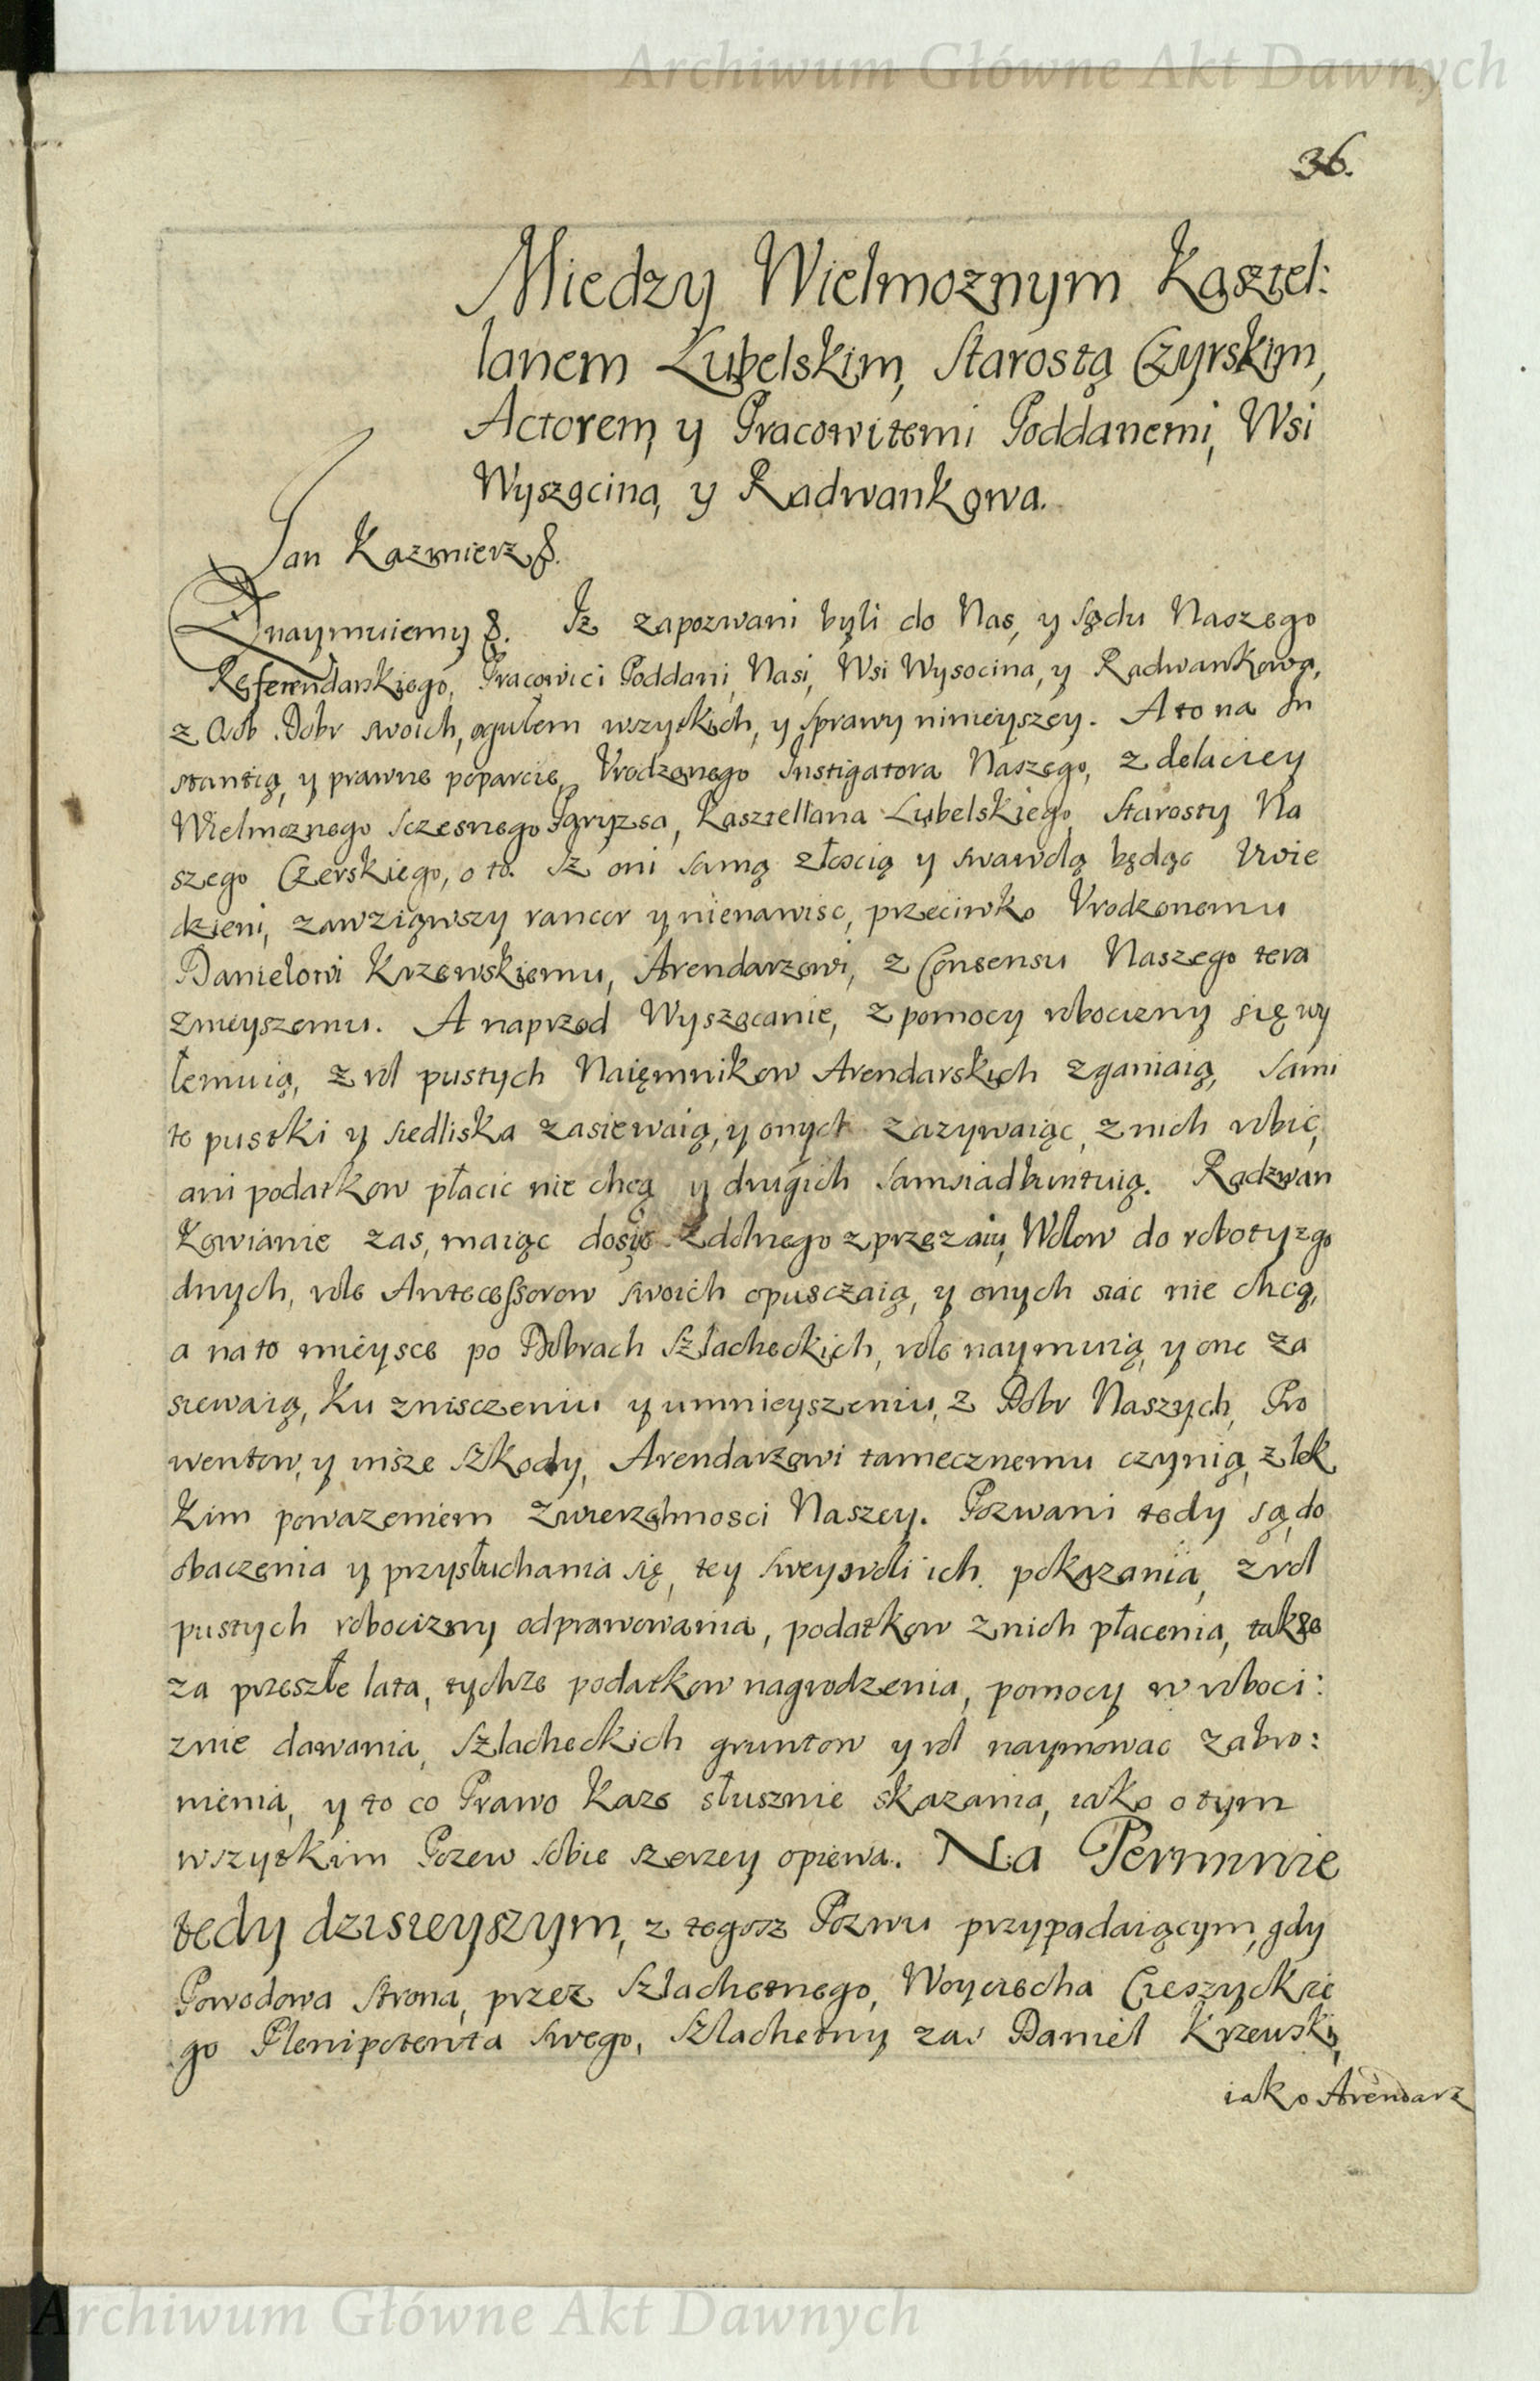 Archiwum Główne Akt Dawnych
36.
Miedzy Wielmoznym Kasztel:
lanem Lubelskim, Starostą Czyrskim,
Actorem, y Pracowitemi Poddanemi, Wsi
Wyszocina, y Radwankowa.
Jan Kazmierz &.
Znaymuiemy &. Iz zapozwani byli do Nas, y Sądu Naszego
Referendarskiego, Pracowici Poddani, Nasi, Wsi Wysocina, y Radwankowa,
z Osob Dobr swoich, ogułem wszytkich, y sprawy ninieyszey. A to na In
stantią, y prawne poparcie, Vrodzonego Instigatora Naszego, z delaciey
Wielmoznego Sczesnego Paryzsa, Kasztellana Lubelskiego, Starosty Na
szego Czerskiego, o to. Iz oni samą złoscią y swawolą będąc Vwie
dzieni, zawziąwszy rancor y nienawisc, przeciwko Vrodzonemu
Danielowi Krzewskiemu, Arendarzowi, z Consensu Naszego tera
znieyszemu. A naprzod Wyszocanie, z pomocy robocizny się wy
łemuią, z rol pustych Naięmnikow Arendarskich zganiaią, sami
te pustki y siedliska zasiewaią, y onych zazywaiąc, z nich robić,
ani podatkow płacic nie chcą y drugich samsiad buntuią. Radzwan
kowianie zas, maiąc dosyc zdolnego zprzęzaiu, Wołow do roboty zgo
dnych, role Antecessorow swoich opusczaią, y onych siac nie chcą,
a na to mieysce po Dobrach Szlacheckich, role naymuią, y one za
siewaią, ku znisczeniu y umnieyszeniu, z Dobr Naszych, Pro
wentow, y insze szkody, Arendarzowi tamecznemu czynią, z lek
kim powazeniem Zwierzchnosci Naszey. Pozwani tedy są, do
obaczenia y przysłuchania się, tey sweywoli ich pokazania, z rol
pustych robocizny odprawowania, podatkow z nich płacenia, takze
za przeszłe lata, tychze podatkow nagrodzenia, pomocy w roboci:
znie dawania, Szlacheckich gruntow y rol naymowac zabro:
nienia, y to co Prawo kaze słusznie skazania, iako o tym
wszytkim Pozew sobie szerzey opiewa. Na Terminie
tedy dzisieyszym, z tegosz Pozwu przypadaiącym, gdy
Powodowa Strona, przez Szlachetnego, Woyciecha Cieszyckie
go Plenipotenta swego, Szlachetny zas Daniel Krzewski,
iako Arendarz
Archiwum Główne Akt Dawnych